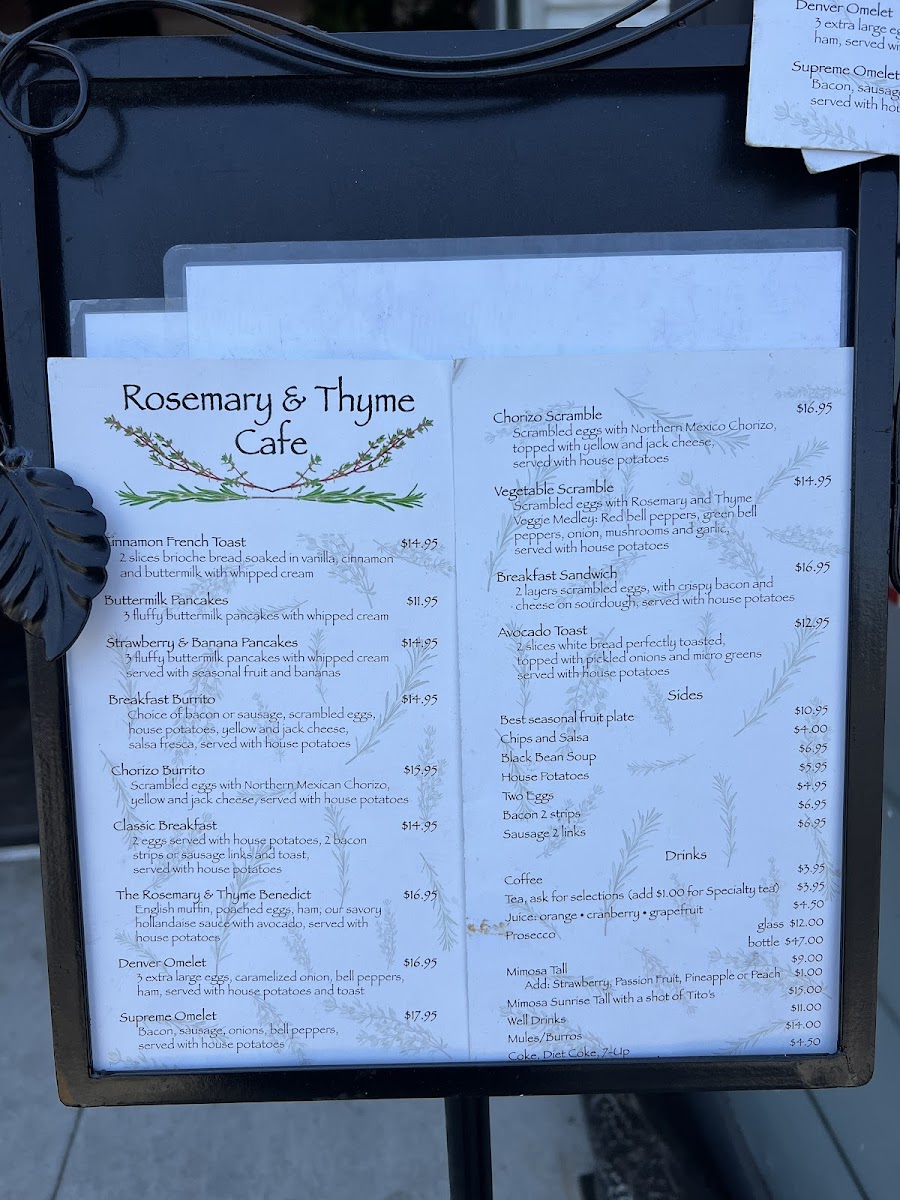 Denver Omelet
3 extra large
ham, served
Supreme Omelet
Bacon,
served with
Rosemary & Thyme
Cafe
Cinnamon French Toast $14.95
2 slices brioche bread soaked in vanilla, cinnamon
and buttermilk with whipped cream
Buttermilk Pancakes $11.95
3 fluffy buttermilk pancakes with whipped cream
Strawberry & Banana Pancakes $14.95
3 fluffy buttermilk pancakes with whipped cream
served with seasonal fruit and bananas
Breakfast Burrito $14.95
Choice of bacon or sausage, scrambled eggs,
house potatoes, yellow and jack cheese,
salsa fresca, served with house potatoes
Chorizo Burrito $15.95
Scrambled eggs with Northern Mexican Chorizo,
yellow and jack cheese, served with house potatoes
Classic Breakfast $14.95
2 eggs served with house potatoes, 2 bacon
strips or sausage links and toast,
served with house potatoes
The Rosemary & Thyme Benedict $16.95
English muffin, poached eggs, ham, our savory
hollandaise sauce with avocado, served with
house potatoes
Denver Omelet $16.95
3 extra large eggs, caramelized onion, bell peppers,
ham, served with house potatoes and toast
Supreme Omelet $17.95
Bacon, sausage, onions, bell peppers,
served with house potatoes
Chorizo Scramble $16.95
Scrambled eggs with Northern Mexico Chorizo,
topped with yellow and jack cheese,
served with house potatoes
Vegetable Scramble $14.95
Scrambled eggs with Rosemary and Thyme
Veggie Medley: Red bell peppers, green bell
peppers, onion, mushrooms and garlic,
served with house potatoes
Breakfast Sandwich $16.95
2 layers scrambled eggs, with crispy bacon and
cheese on sourdough, served with house potatoes
Avocado Toast $12.95
2 slices white bread perfectly toasted,
topped with pickled onions and micro greens
served with house potatoes
Sides
Best seasonal fruit plate $10.95
Chips and Salsa $4.00
Black Bean Soup $6.95
House Potatoes $5.95
Two Eggs $4.95
Bacon 2 strips $6.95
Sausage 2 links $6.95
Drinks
Coffee $3.95
Tea, ask for selections (add $1.00 for Specialty tea) $3.95
Juice: orange • cranberry • grapefruit $4.50
Prosecco glass $12.00
bottle $47.00
Mimosa Tall $9.00
Add: Strawberry, Passion Fruit, Pineapple or Peach $1.00
Mimosa Sunrise Tall with a shot of Tito's $15.00
Well Drinks $11.00
Mules/Burros $14.00
Coke, Diet Coke, 7-Up $4.50